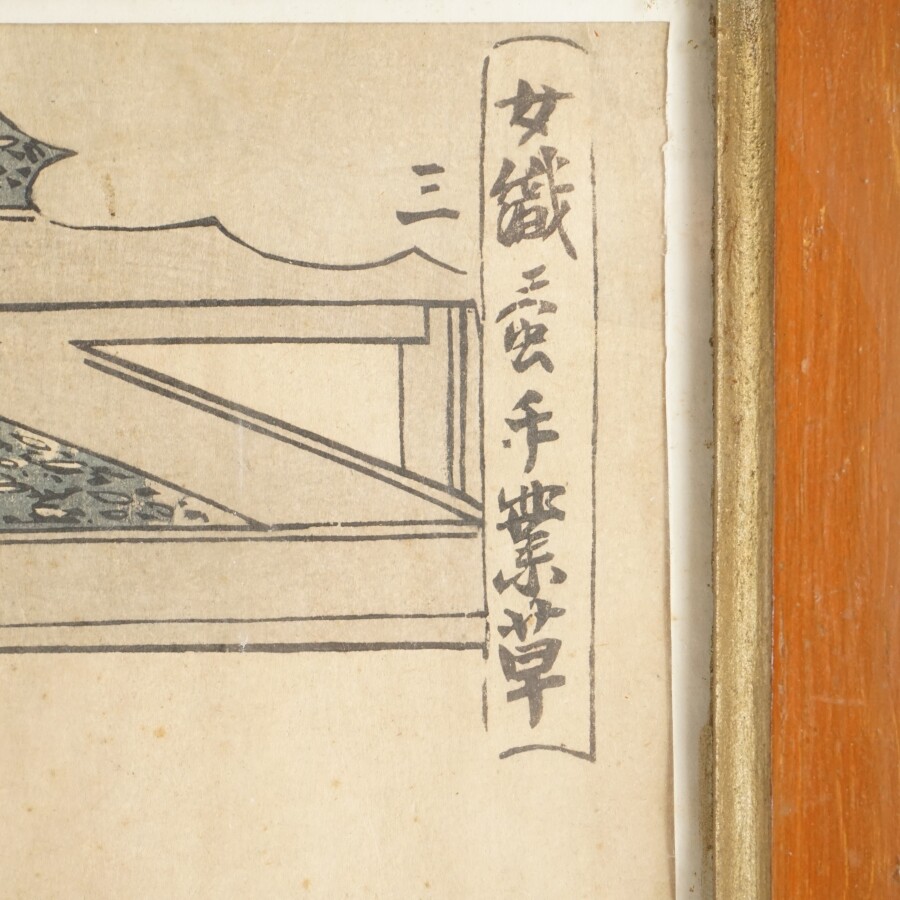 女織蚕手業草
三